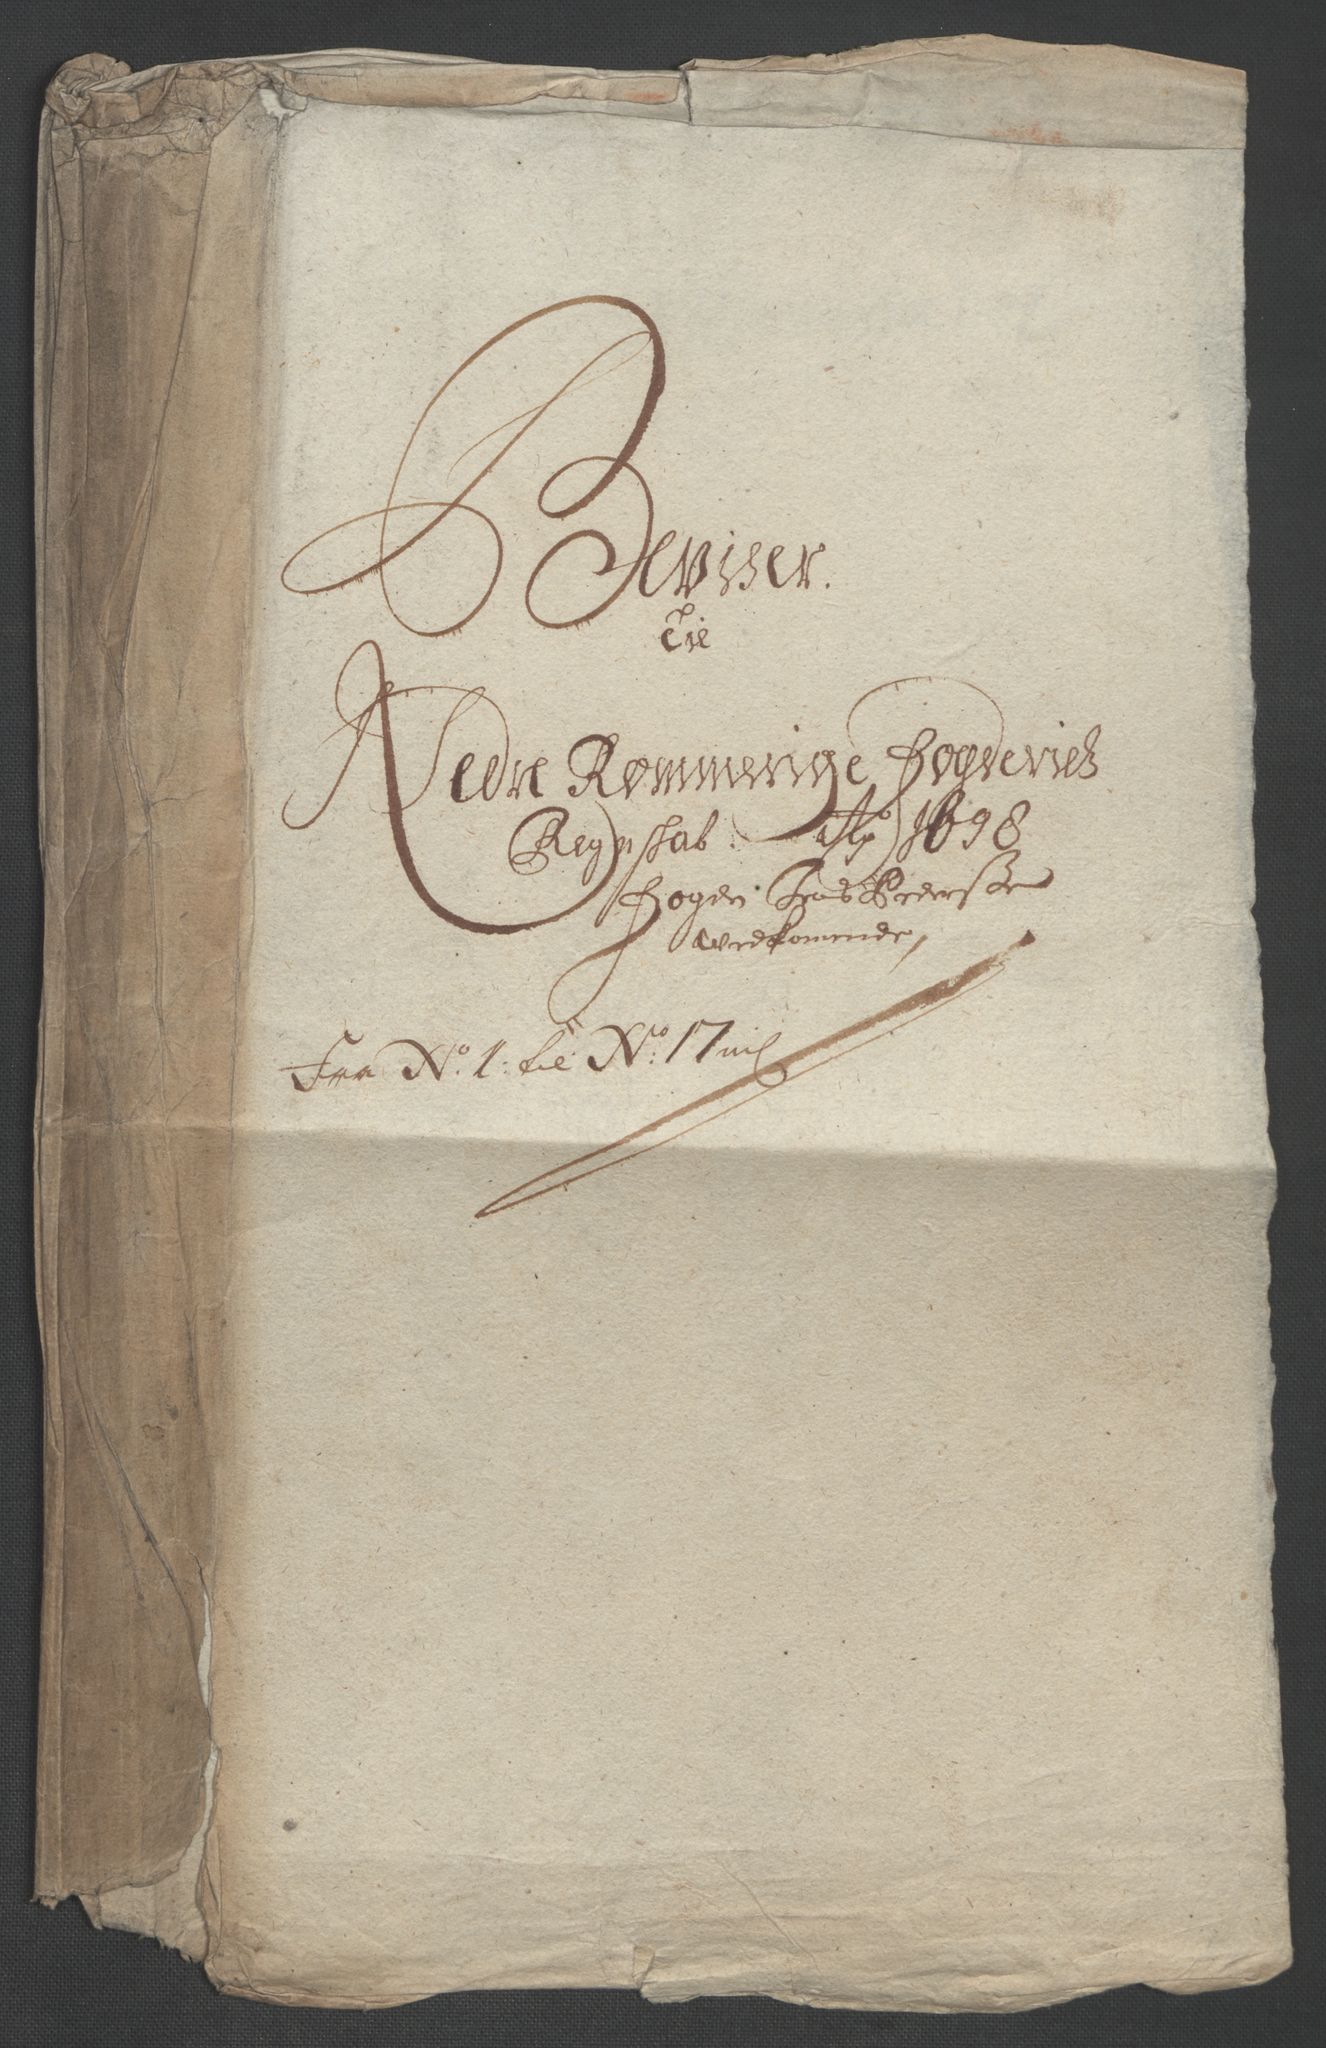 Beviser.
til
Nedre Rommerige Fogderies
Regnskab Ao 1698
Fogden Pederssen
vedkommende,
Fra No. 1. til No. 17 incl